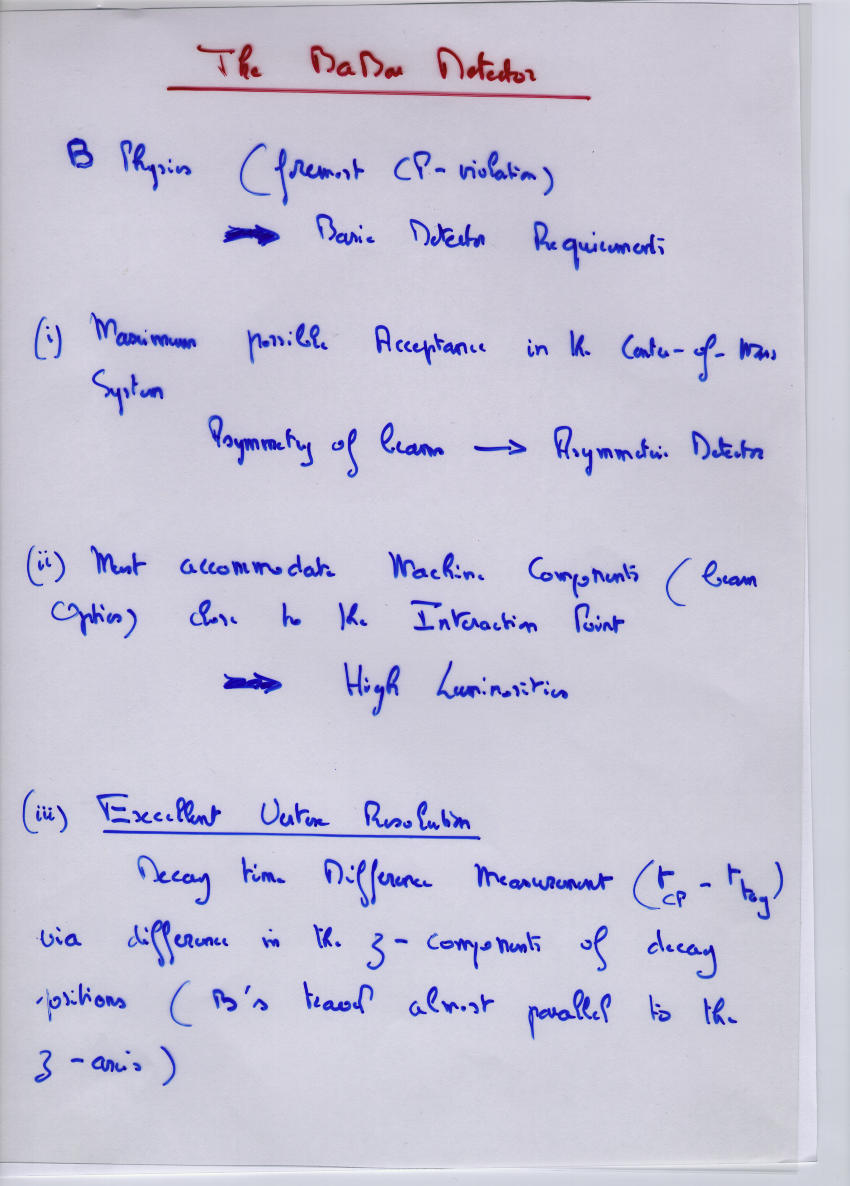 The BaBar Detector
B Physics (foremost CP-violation)
➡ Basic Detector Requirements
(i) Maximum possible Acceptance in the Center-of-Mass
System
Asymmetry of beams → Asymmetric Detector
(ii) Must accommodate Machine Components (beam
Optics) close to the Interaction Point
➡ High Luminosities
(iii) Excellent Vertex Resolution
Decay time Difference Measurement (t_CP - t_tag)
via difference in the z-components of decay
positions (B's travel almost parallel to the
z-axis)